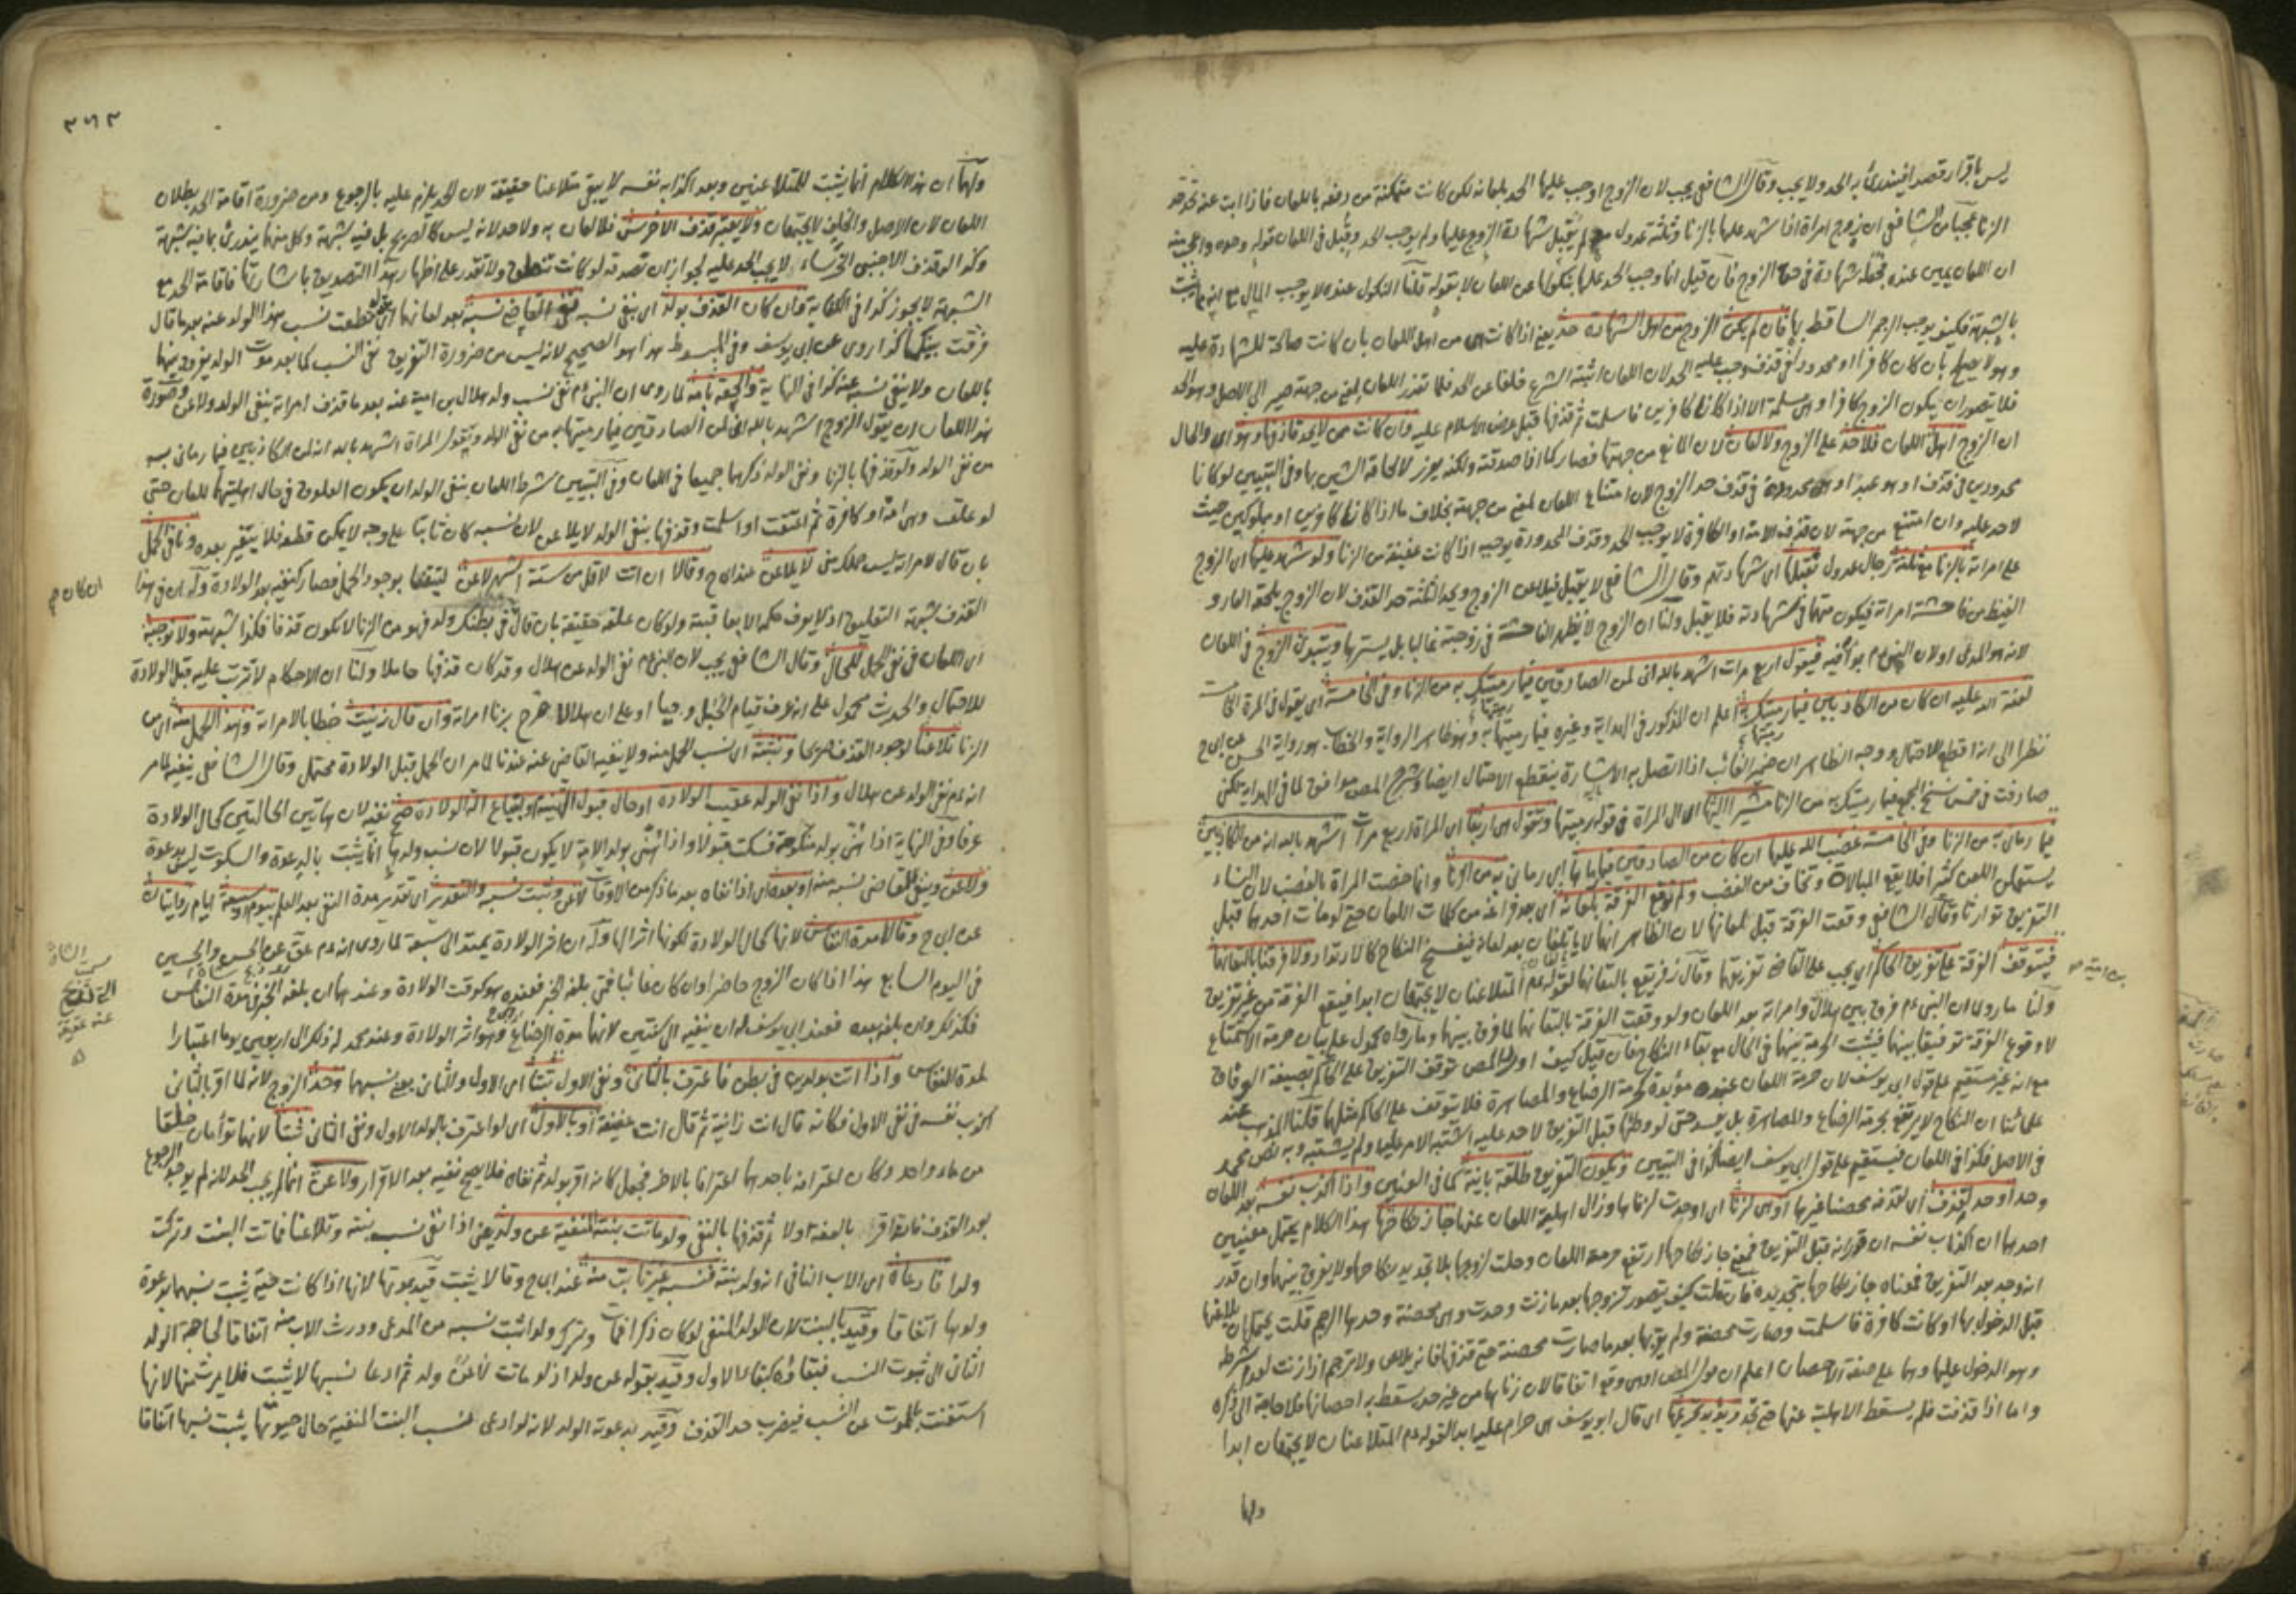 ليس باقرار قصدا فيندرئ به الحد ولا يجب وقال الشافعي يجب لان الزوج اوجب عليها الحد بلعانه لكن كانت متمكنة من دفعه باللعان فاذا ابت عنه تحد حد
الزنا عجبا من الشافعي ان زوج امرأة اذا شهد عليها بالزنا وثلثة عدول لم يقبل شهادة الزوج عليها ولم يوجب الحد وقبل في اللعان قوله وحده
ان اللعان يمين عنده فان قيل انما وجب الحد عليها بنكولها عن اللعان لا بقوله قلنا النكول عنده لا يوجب المال مع انه يثبت
بالشبهة فكيف يوجب الرجم الساقط بها فان لم يكن الزوج من اهل الشهادة حد يعني اذا كانت هي من اهل اللعان بان كانت صالحة للشهادة عليه
وهو لا يصلح بان كان كافرا او محدودا في قذف وجب عليه الحد لان اللعان اثبته الشرع خلفا عن الحد فلما تعذر اللعان لمعنى من جهته يصير الى الاصل وهو الحد
فلا يتصور ان يكون الزوج كافرا وهي مسلمة الا اذا كانا كافرين فاسلمت ثم قذفها قبل عرض الاسلام عليه وان كانت ممن لا يحد قاذفها وهو اي والحال
ان الزوج اهل اللعان فلا حد على الزوج ولا لعان لان المانع من جهتها فصار كما اذا صدقته ولكنه يعزر لالحاقه الشين بها وفي التبيين لو كانا
محدودين في قذف او هو عبد او هي محدودة في قذف حد الزوج لان امتناع اللعان لمعنى من جهته بخلاف ما اذا كانا كافرين او مملوكين حيث
لا حد عليه وان امتنع من جهته لان قذف الامة او الكافرة لا يوجب الحد وقذف المحدودة يوجبه اذا كانت عفيفة من الزنا ولو شهد عليها اي الزوج
على امرأته بالزنا مع ثلثة رجال عدول تقبل اي شهادتهم وقال الشافعي لا يقبل فيلاعن الزوج ويحد الثلثة حد القذف لان الزوج يلحقه العار و
الغيظ من فاحشة امرأته فيكون متهما في شهادته فلا يقبل ولنا ان الزوج لا يظهر الفاحشة في زوجته غالبا بل يسترها ويبتدئ الزوج في اللعان
لانه هو المدعي ولان النبي ءم بدأ فيه فيقول اربع مرات اشهد بالله اني لمن الصادقين فيما رميتك به من الزنا وفي الخامسة اي يقول في المرة الخامسة
لعنة الله عليه ان كان من الكاذبين فيما رميتك به اعلم ان المذكور في الهداية وغيره فيما رميتها به وهو ظاهر الرواية والخطاب هو رواية الحسن عن ابي ح
نظرا الى انه اقطع للاحتمال ووجه الظاهر ان ضمير الغائب اذا اتصل به الاشارة ينقطع الاحتمال ايضا وشرح المص موافق لما في الهداية لكن
صادفت في بعض نسخ المجمع فيما رميتك به من الزنا مشيرا اليها اي الى المرأة في قوله رميتها وتقول هي اربعا اي المرأة اربع مرات اشهد بالله انه من الكاذبين
فيما رماني به من الزنا وفي الخامسة غضب الله عليها ان كان من الصادقين فيما رماها اي رماني به من الزنا وانما خصت المرأة بالغضب لان النساء
يستعملن اللعن كثيرا فلا يقع المبالاة وتخاف من الغضب ولم نوقع الفرقة بلعانه اي بعد فراغه من كلمات اللعان حتى لو مات احدهما قبل
التفريق توارثا وقال الشافعي وقعت الفرقة قبل لعانها لان الظاهر انهما لا يأتلفان بعد لعانه فينفسخ النكاح كالارتداد ولا فرقنا بالتعانهما
فيتوقف الفرقة على تفريق الحاكم اي يجب على القاضي تفريقها وقال زفر يقع بالتعانهما لقوله عم المتلاعنان لا يجتمعان ابدا فيقع الفرقة من غير تفريق
ولنا ما روي ان النبي ءم فرق بين هلال وامرأته بعد اللعان ولو وقعت الفرقة بالتعانهما لما فرق بينهما وما رواه محمول على بيان حرمة الاستمتاع
لا وقوع الفرقة توفيقا بينهما فيثبت الحرمة بينهما في الحال مع بقاء النكاح فان قيل كيف اورد المص توقف التفريق على الحاكم بصيغة الوفاق
مع انه غير مستقيم على قول ابي يوسف لان حرمة اللعان عنده مؤبدة كحرمة الرضاع والمصاهرة فلا يتوقف على الحاكم مثلها قلنا المذهب عند
علمائنا ان النكاح لا يرتفع بحرمة الرضاع والمصاهرة بل يفسد حتى لو وطئها قبل التفريق لا حد عليه اشتبه الامر عليه او لم يشتبه وبه نص محمد
في الاصل فكذا في اللعان فيستقيم على قول ابي يوسف ايضا كذا في التبيين ويكون التفريق طلقة باينة كما في العنين واذا اكذب نفسه بعد اللعان
وحد او حد لقذف اي لقذفه محصنا غيرها او هي لزنا اي او حدت لزناها وزال اهلية اللعان عنها جاز نكاحها هذا الكلام يحتمل معنيين
احدهما ان اكذاب نفسه ان قدر انه قبل التفريق فمعنى جاز نكاحها ارتفع حرمة اللعان وحلت لزوجها بلا تجديد نكاحها ولا يفرق بينهما وان قدر
انه وجد بعد التفريق فمعناه جاز نكاحها بتجديده فان قلت كيف يتصور تزوجها بعد ما زنت وحدت وهي محصنة وحدها الرجم قلت يحتمل ان يلاعنها
قبل الدخول بها او كانت كافرة فاسلمت وصارت محصنة ولم يقربها بعد ما صارت محصنة حتى قذفها فانه يلاعن ولا ترجم اذا زنت لعدم شرطه
وهو الدخول عليها وهما على صفة الاحصان اعلم ان قول المص او هي وقع اتفاقا لان زناها من غير حد يسقط به احصانها فلا حاجة الى ذكره
واما اذا قذفت فلم يسقط الاهلية عنها حتى تحد ويؤبد تحريمها اي قال ابو يوسف هي حرام عليه ابدا لقوله عم المتلاعنان لا يجتمعان ابدا
ولهما
٣٦٣
ولهما ان هذا الكلام انما يثبت للمتلاعنين وبعد اكذابه نفسه لا يبقى متلاعنا حقيقة لان الحد يلزم عليه بالرجوع ومن ضرورة اقامة الحد بطلان
اللعان لان الاصل والخلف لا يجتمعان ولا يعتبر قذف الاخرس فلا لعان به ولا حد لانه ليس كالصريح بل فيه شبهة وكل منهما يندرئ بما فيه شبهة
وكذا لو قذف الاجنبي الخرساء لا يجب الحد عليه لجواز ان تصدقه لو كانت تنطق ولا تقدر على اظهار هذا التصديق باشارتها فاقامة الحد مع
الشبهة لا يجوز كذا في الكفاية وان كان القذف بولد اي بنفي نسبه نفى القاضي نسبه بعد لعانهما اي بقوله قطعت نسب هذا الولد عنه بعد ما قال
فرقت بينكما كذا روي عن ابي يوسف وفي المبسوط هذا هو الصحيح لانه ليس من ضرورة التفريق نفي النسب كما بعد موت الولد يفرق بينهما
باللعان ولا ينفى نسبه عنه كذا في النهاية والحقه بامه لما روي ان النبي ءم نفى نسب ولد هلال بن امية عنه بعد ما قذف امرأته بنفي الولد ولاعن وصورة
هذا اللعان ان يقول الزوج اشهد بالله اني لمن الصادقين فيما رميتها به من نفي الولد وتقول المرأة اشهد بالله انه لمن الكاذبين فيما رماني به
من نفي الولد ولو قذفها بالزنا ونفي الولد ذكرهما جميعا في اللعان وفي التبيين شرط اللعان بنفي الولد ان يكون العلوق في حال اهليتهما للعان حتى
لو علقت وهي امة او كافرة ثم اعتقت او اسلمت وقذفها بنفي الولد لا يلاعن لان نسبه كان ثابتا على وجه لا يمكن قطعه فلا يتغير بعده ونافي الحمل
بان قال لامرأته ليس حملك مني لا يلاعن عند ابي ح وقالا ان اتت لاقل من ستة اشهر لاعن ليتقنا بوجود الحمل فصار كنفيه بعد الولادة وله ان في هذا
القذف شبهة التعليق اذ لا يعرف حكمه الا بعاقبته ولو كان علقه حقيقة بان قال في بطنك ولد فهو من الزنا لا يكون قذفا فكذا شبهته ولا نوجبه
اي اللعان في نفي الحمل للحال وقال الشافعي يجب لان النبي ءم نفى الولد عن هلال وقد كان قذفها حاملا ولنا ان الاحكام لا تترتب عليه قبل الولادة
للاحتمال والحديث محمول على انه عرف قيام الحبل وحيا او على ان هلالا صرح بزنا امرأته وان قال زنيت خطابا لامرأته وهذا الحمل منه اي من
الزنا تلاعنا لوجود القذف صريحا ونثبته اي نسب الحمل منه ولا ينفيه القاضي عنه عندنا لما مر ان الحمل قبل الولادة محتمل وقال الشافعي ينفيه لما مر
انه ءم نفى الولد عن هلال واذا نفى الولد عقيب الولادة او حال قبول التهنية وابتياع آلة الولادة صح نفيه لان هاتين الحالتين كحال الولادة
عرفا وفي النهاية اذا هنئ بولد منكوحته فسكت قبولا واذا هنئ بولد الامة لا يكون قبولا لان نسب ولدها انما يثبت بالدعوة والسكوت ليس بدعوة
ولاعن وينفي القاضي نسبه منه او بعده اي اذا نفاه بعد ما ذكر من الاوقات لاعن وثبت نسبه والتقدير اي تقدير مدة النفي بعد العلم بيوم او سبعة ايام روايتان
عن ابي ح وقالا مدة النفاس لانها كحال الولادة لكونها اثرا لها وله ان اثر الولادة يمتد الى سبعة لما روي انه ءم عق عن الحسن والحسين
في اليوم السابع هذا اذا كان الزوج حاضرا وان كان غائبا فمتى بلغه الخبر فعنده هو كوقت الولادة وعندهما ان بلغه الخبر في مدة النفاس
فكذلك وان بلغه بعده فعند ابي يوسف له ان ينفيه الى سنتين لانها مدة الرضاع وهو اثر الولادة وعند محمد له ذلك الى اربعين يوما اعتبارا
لمدة النفاس واذا اتت بولدين في بطن فاعترف بالثاني ونفى الاول ثبتا اي الاول والثاني يعني نسبهما وحد الزوج لانه لما اقر بالثاني
اكذب نفسه في نفي الاول فكانه قال انت زانية ثم قال انت عفيفة او بالاول اي لو اعترف بالولد الاول ونفى الثاني ثبتا لانهما توأمان خلقا
من ماء واحد وكان اعترافه باحدهما اعترافا بالاخر فيجعل كانه اقر بولد ثم نفاه فلا يصح نفيه بعد الاقرار ولاعن انما لم يجب الحد لانه لم يوجد الرجوع
بعد القذف فانه اقر بالعفة اولا ثم قذفها بالنفي ولو ماتت بنته المنفية عن ولد يعني اذا نفى نسب بنته وتلاعنا فماتت البنت وتركت
ولدا فادعاه اي الاب النافي انه ولد بنته فنسبه غير ثابت منه عند ابي ح وقالا يثبت قيد بموتها لانها اذا كانت حية يثبت نسبها بدعوة
ولدها اتفاقا وقيد بالبنت لان الولد المنفي لو كان ذكرا فمات وترك ولدا ثبت نسبه من المدعي وورث الاب منه اتفاقا لحاجة الولد
الثاني الى ثبوت النسب فبقاؤه كبقاء الاول وقيد بقوله عن ولد اذ لو ماتت لا عن ولد ثم ادعا نسبها لا يثبت فلا يرث منها لانها
استغنت بالموت عن النسب فيضرب حد القذف وقيد بدعوته الولد لانه لو ادعى نسب البنت المنفية حال حيوتها يثبت نسبها اتفاقا